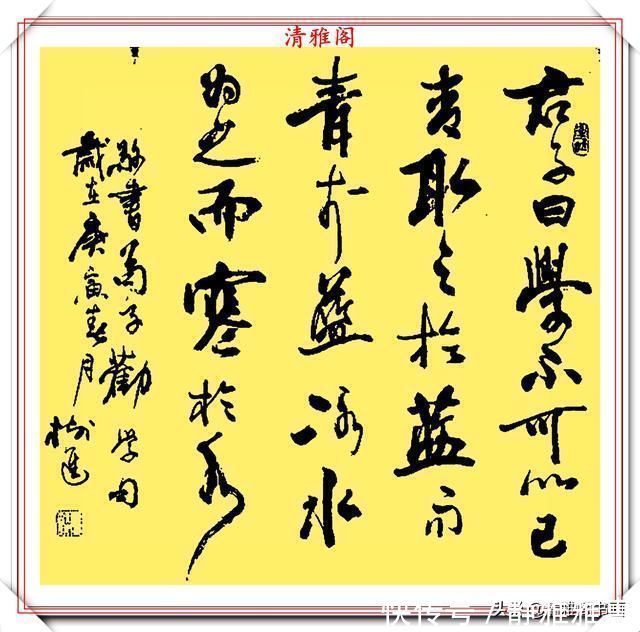 清雅阁
君子曰學不可以已
青取之於藍而
青於藍冰水
為之而寒於水
書荀子勸学句
歲在庚寅春月
快传号/静雅雅